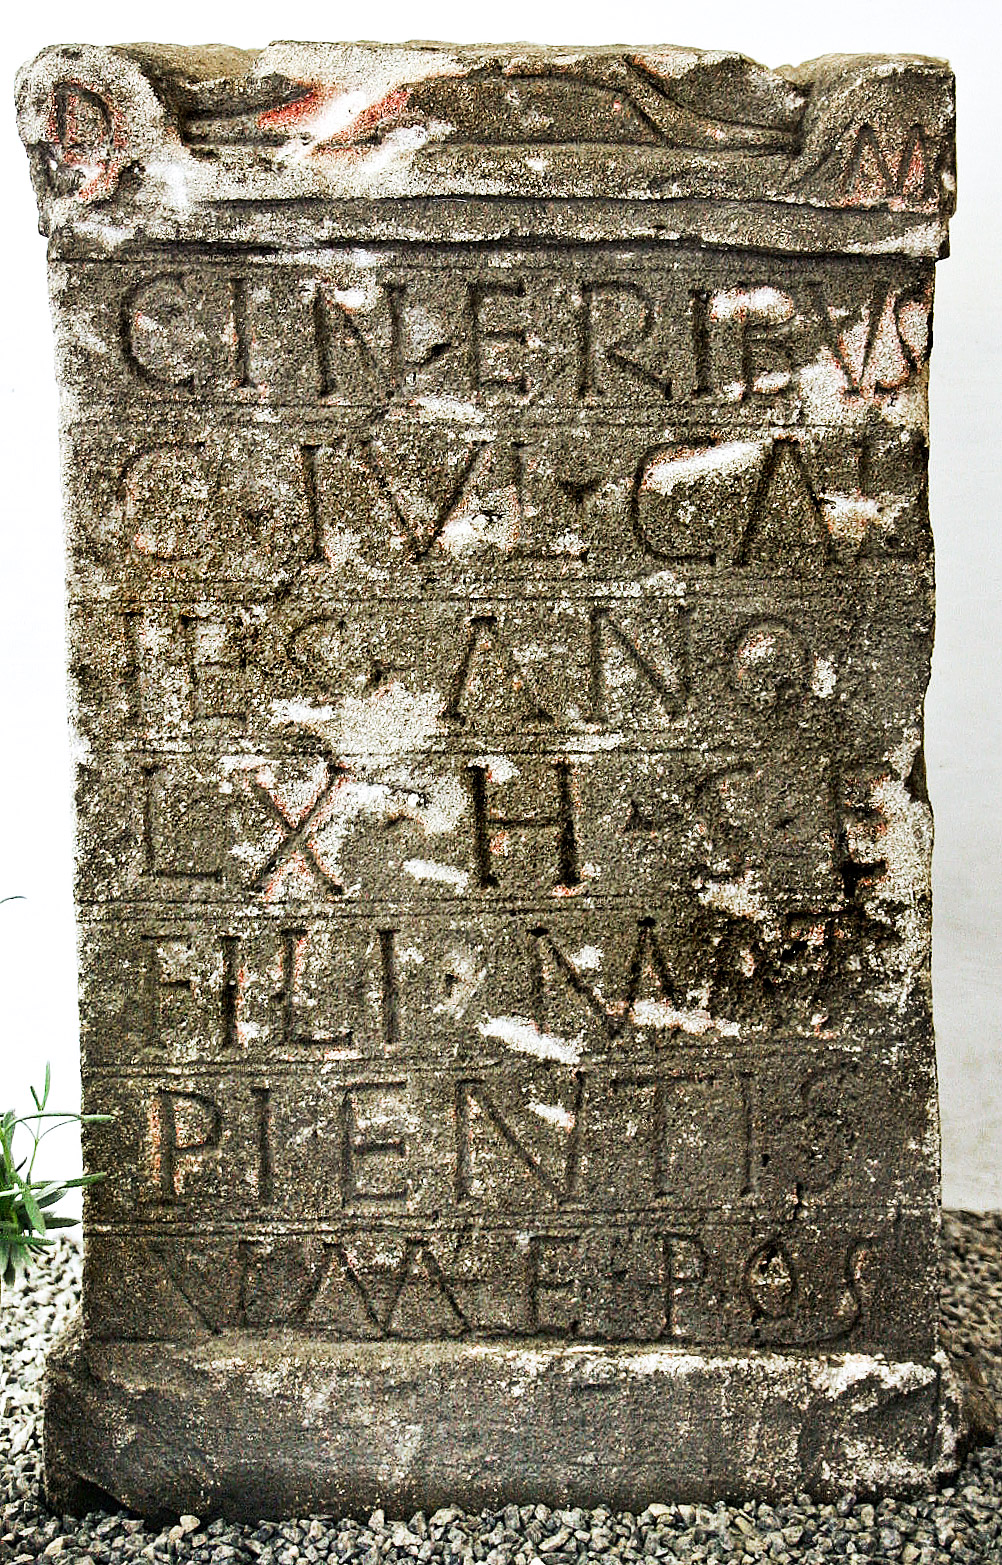 D M
CINERIBVS
C·IVL·CAL
IES·ANO
LX·H·S·E
FILI·
PIENTIS
POS